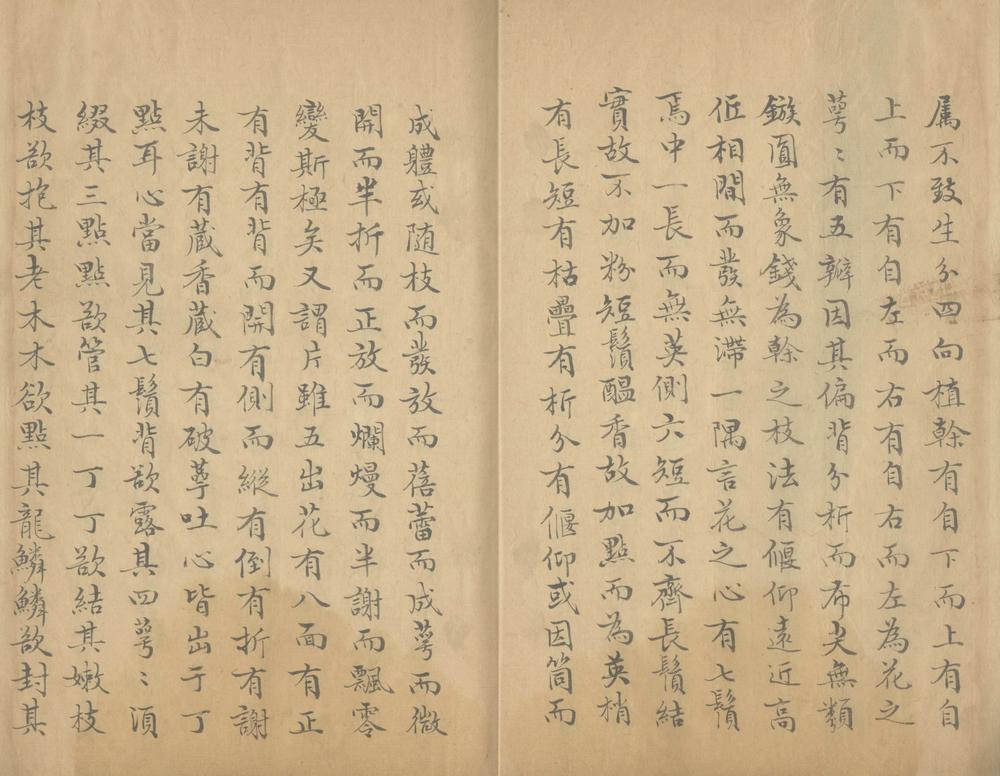 属不致生分四向植幹有自下而上有自
上而下有自左而右有自右而左為花之
萼〻有五瓣因其偏背分析而布尖無類
鏃圓無象錢為幹之枝法有偃仰遠近高
低相間而發無滯一隅言花之心有七鬚
焉中一長而無英側六短而不齊長鬚結
實故不加粉短鬚醞香故加點而為英梢
有長短有枯疊有析分有偃仰或因筒而
成體或随枝而發放而蓓蕾而成萼而微
開而半折而正放而爛熳而半謝而飄零
變斯極矣又謂片雖五出花有八面有正
有背有背而開有側而縱有倒有折有謝
未謝有蔵香蔵白有破萼吐心皆出于丁
點耳心當見其七鬚背欲露其四萼〻須
綴其三點點欲管其一丁丁欲結其嫩枝
枝欲抱其老木木欲點其龍鱗鱗欲封其